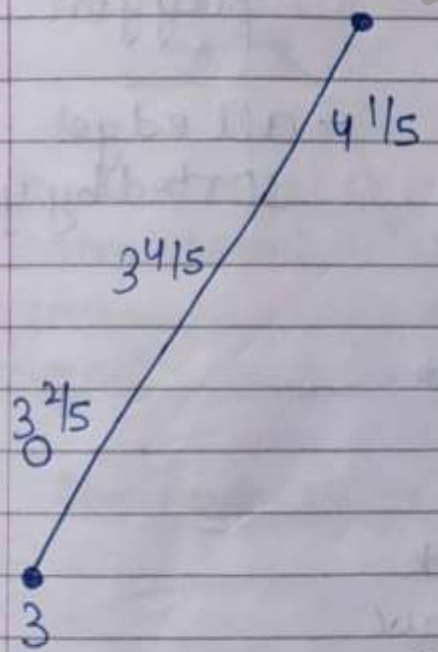 4 1/5
3 4/5
3 2/5
3